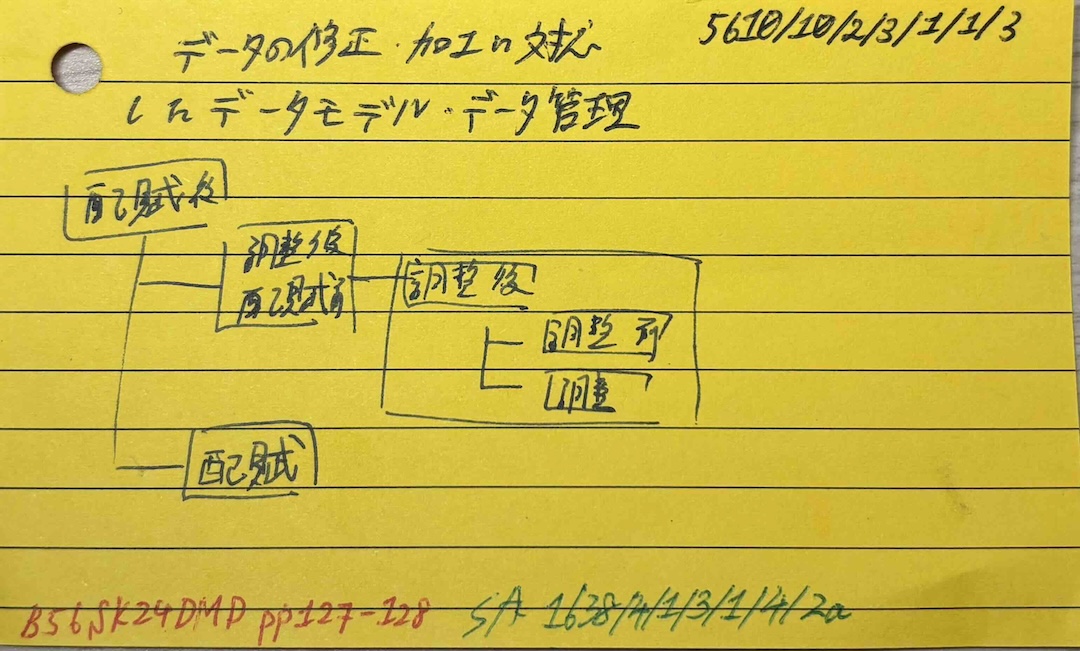 5610/10/2/3/1/1/3
データの修正・加工に対応
したデータモデル・データ管理
配賦後
調整後
配賦前
調整後
調整前
調整
配賦
B56SK24DMD pp127-128
SA 1638/4/1/3/1/4/2a